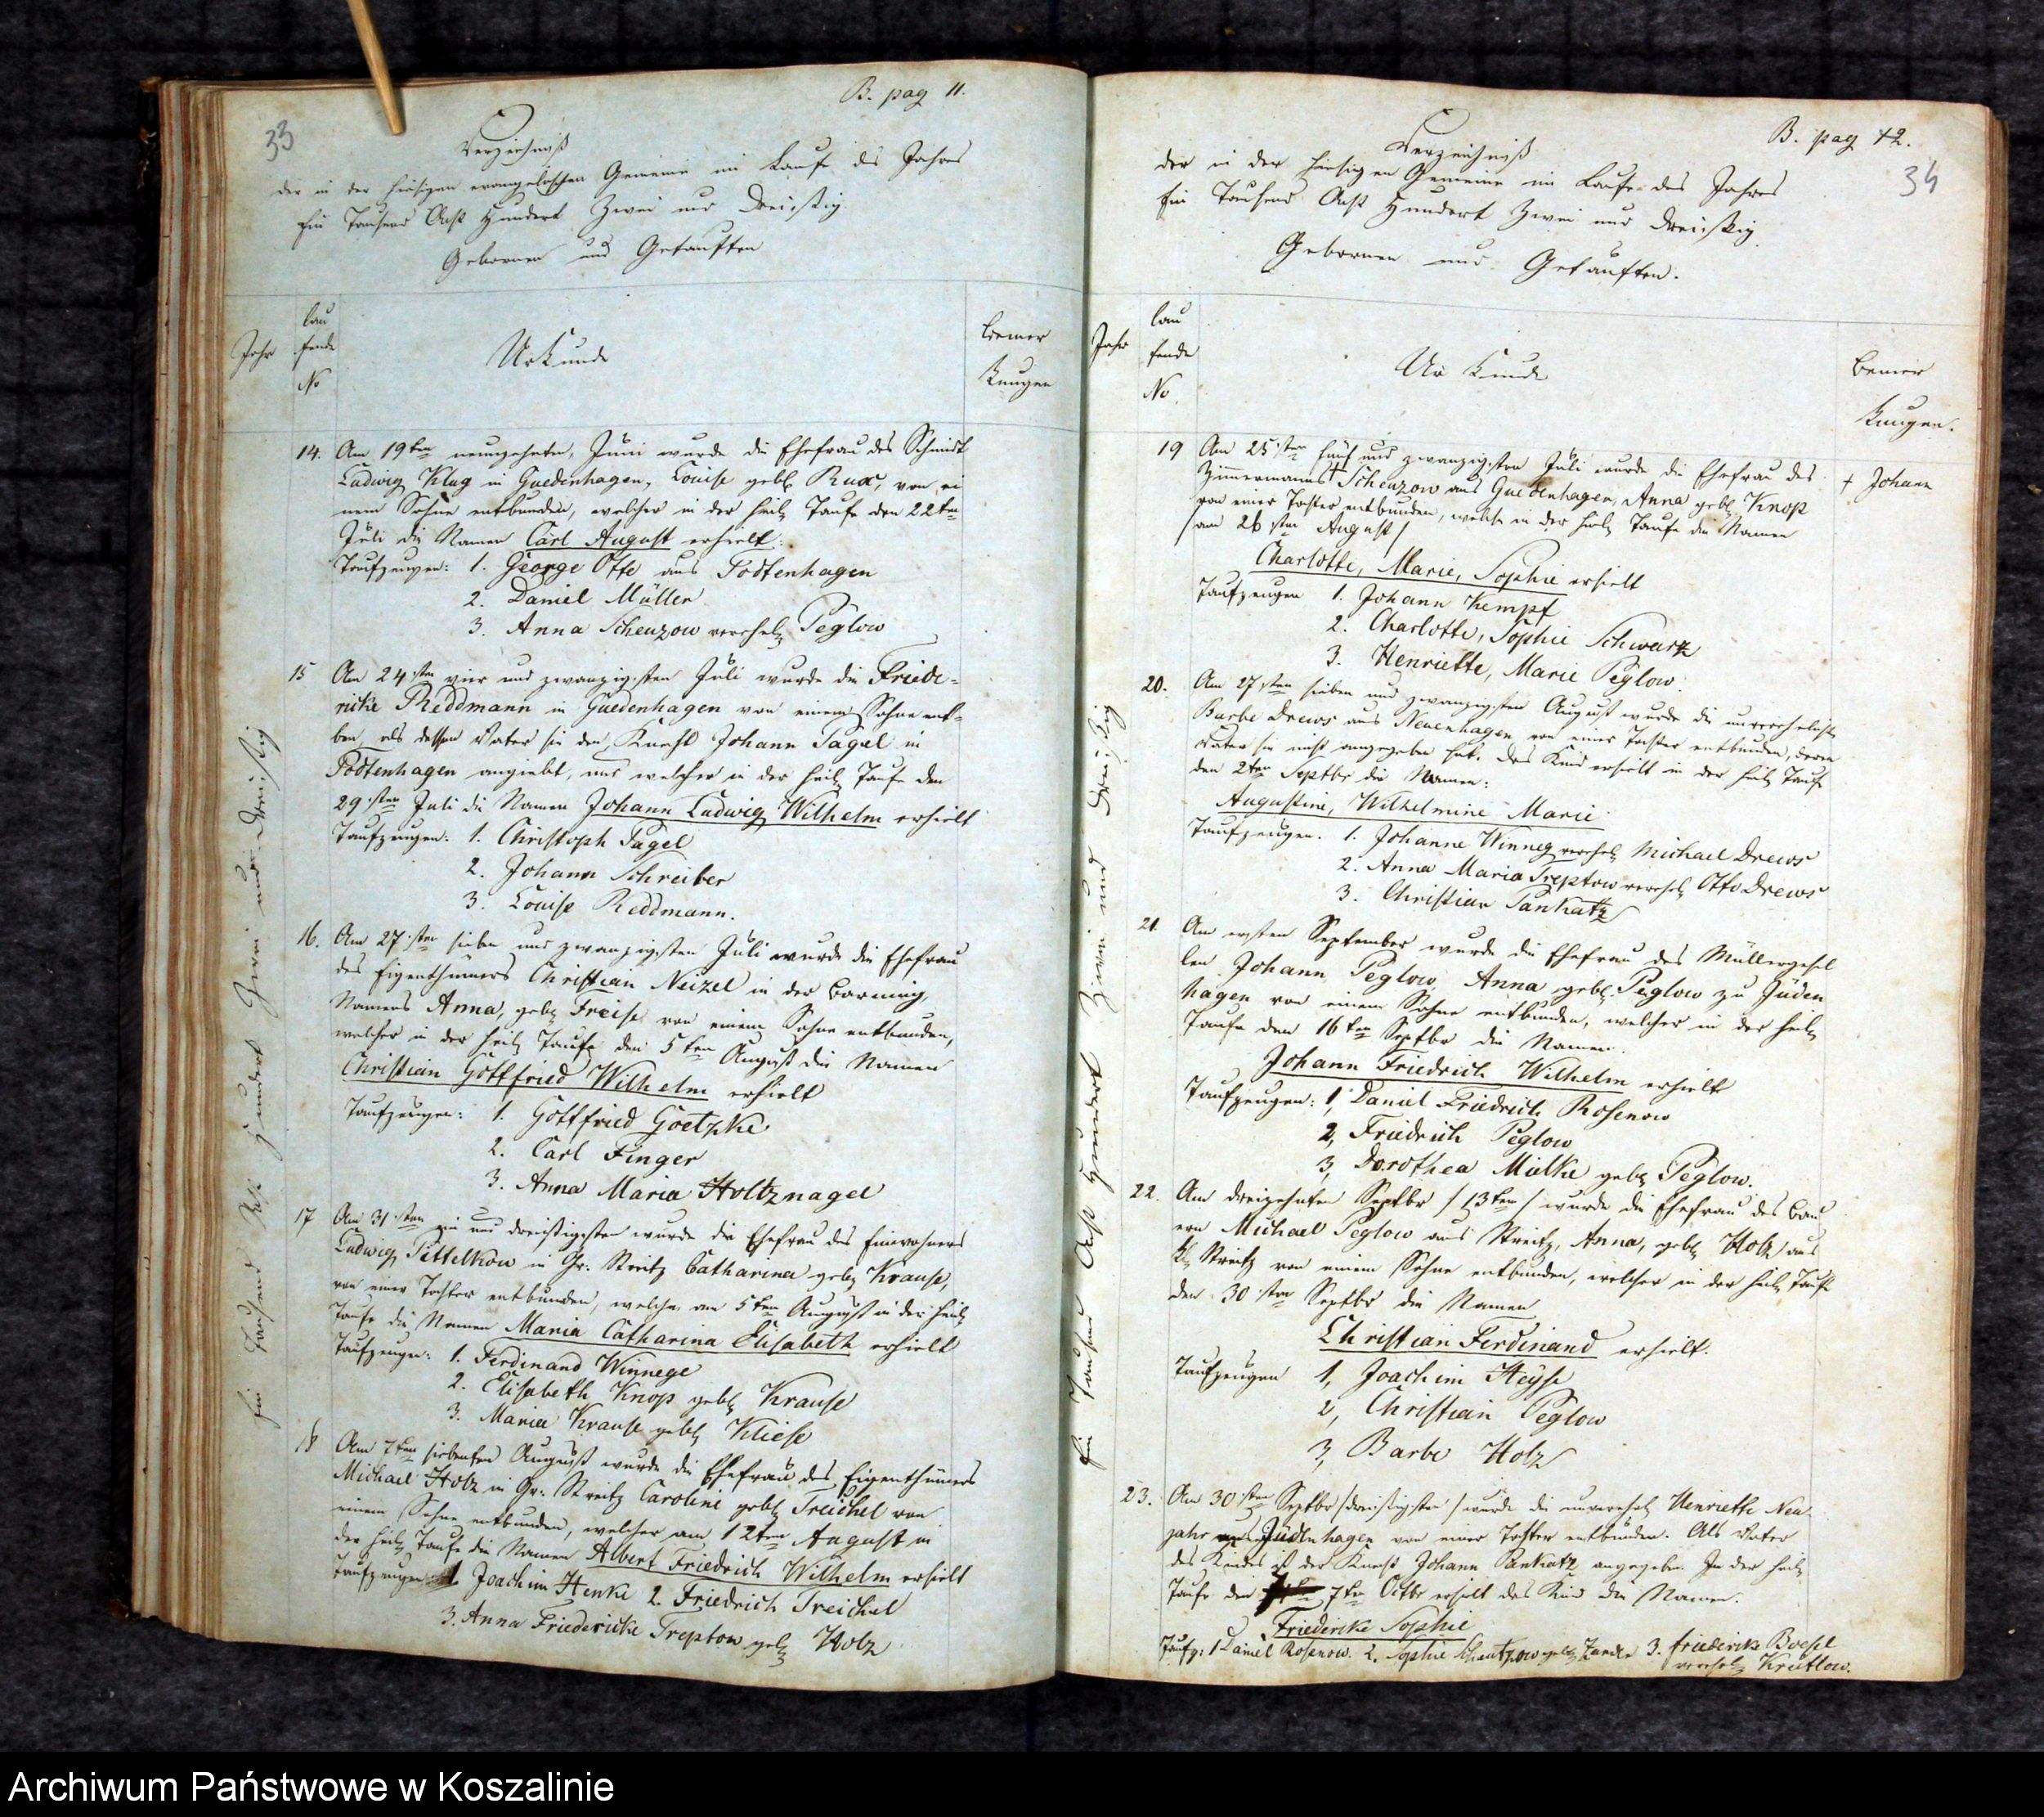 33
B. pag 11.
Verzeichniß
der in der hiesigen evangelischen Gemeine im Laufe des Jahres
Ein Tausend Acht Hundert Zwei und Dreißig
Gebornen und Getauften
Jahr
lau
fende
No
Urkunde
Bemer
kungen
Ein Tausend Acht Hundert Zwei und Dreißig
14. Am 19ten neunzehnten, Juni wurde die Ehefrau des Schmidt
Ludwig Klug in Guedenhagen, Louise gebl. Rux, von ei
nem Sohne entbunden, welcher in der heil. Taufe den 22ten
Juli die Namen Carl August erhielt:
Taufzeugen: 1. George Otte aus Todtenhagen
2. Daniel Müller
3. Anna Scheuzow verehel. Peglow
15 Am 24sten vier und zwanzigsten Juli wurde die Friede-
ricke Reddmann in Guedenhagen von einem Sohne ent-
ben, als dessen Vater sie den Knecht Johann Pagel in
Todtenhagen angiebt, und welcher in der heil. Taufe den
29.sten Juli die Namen Johann Ludwig Wilhelm erhielt
Taufzeugen: 1. Christoph Pagel
2. Johann Schreiber
3. Louise Reddmann.
16. Am 27.sten sieben und zwanzigsten Juli wurde die Ehefrau
des Eigenthümers Christian Neizel in der Borning,
Namens Anna, geb. Freise von einem Sohne entbunden,
welcher in der heil. Taufe den 5ten August die Namen
Christian Gottfried Wilhelm erhielt
Taufzeugen: 1. Gottfried Goetzke
2. Carl Finger
3. Anna Maria Holtznagel
17 Am 31.sten ein und dreißigsten wurde die Ehefrau des Einwohners
Ludwig Pittelkow in Gr: Streitz Catharina geb. Krause,
von einer Tochter entbunden, welche am 5ten August in der heil.
Taufe die Namen Maria Catharina Elisabeth erhielt
Taufzeugen: 1. Ferdinand Winnege
2. Elisabeth Knop geb. Krause
3. Maria Krause geb. Kliese
18 Am 7ten siebenten August wurde die Ehefrau des Eigenthümers
Michael Holz in Gr: Streitz Caroline geb. Treichel von
einem Sohne entbunden, welcher am 12ten August in
der heil. Taufe die Namen Albert Friedrich Wilhelm erhielt
Taufzeugen 1. Joachim Henke 2. Friedrich Treichel
3. Anna Friedericke Treptow geb. Holz
B. pag 12.
34
Verzeichniß
der in der hiesigen Gemeine im Laufe des Jahres
Ein Tausend Acht Hundert Zwei und Dreißig
Gebornen und Getauften.
Jahr
lau
fende
No.
Urkunde
Bemer
kungen.
Ein Tausend Acht Hundert Zwei und Dreißig
19 Am 25sten fünf und zwanzigsten Juli wurde die Ehefrau des
Zimmermanns + Scheuzow aus Guedenhagen, Anna geb. Knop
von einer Tochter entbunden, welche in der heil. Taufe die Namen
/am 26sten August/
+ Johann
Charlotte, Marie, Sophie erhielt
Taufzeugen 1. Johann Kempf
2. Charlotte, Sophie Schwartz
3. Henriette, Marie Peglow.
20. Am 27sten sieben und zwanzigsten August wurde die unverehelichte
Barbe Drews aus Neuenhagen von einer Tochter entbunden, deren
Vater sie nicht angegeben hat. Das Kind erhielt in der heil. Taufe
den 2ten Septbr die Namen:
Augustine, Wilhelmine Marie
Taufzeugen. 1. Johanne Winneg verehel. Michael Drews
2. Anna Maria Treptow verehel. Otto Drews
3. Christian Pankatz
21. Am ersten September wurde die Ehefrau des Müllergesel
len Johann Peglow, Anna gebl. Peglow zu Jüden
hagen von einem Sohne entbunden, welcher in der heil.
Taufe den 16ten Septbr die Namen.
Johann Friedrich Wilhelm erhielt
Taufzeugen: 1, Daniel Friedrich Rosenow
2, Friedrich Peglow
3, Dorothea Mielke geb. Peglow.
22. Am dreizehnten Septbr /13ten/ wurde die Ehefrau des Bau
ern Michael Peglow aus Streitz, Anna, geb. Holz aus
Kl. Streitz von einem Sohne entbunden, welcher in der heil. Taufe
den 30sten Septbr die Namen
Christian Ferdinand erhielt.
Taufzeugen 1, Joachim Heyse
2, Christian Peglow
3, Barbe Holz
23. Am 30sten Septbr /dreißigsten/ wurde die unverehel. Henriette Neu
jahr aus Jüdenhagen von einer Tochter entbunden. Als Vater
des Kindes ist der Knecht Johann Pankatz angegeben. In der heil.
Taufe den 7ten Octbr erhielt das Kind die Namen.
Friedericke Sophie
Taufz: 1 Daniel Rosenow. 2. Sophie Scheutzow geb. 3. Friedericke Boesel
verehel. Krütlow.
Archiwum Państwowe w Koszalinie